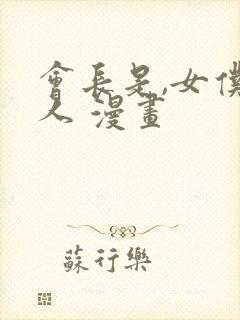 會長是,女僕
人 漫畫
蘇行樂